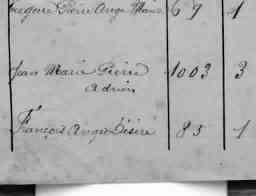 Pierre Ange Marie 69 1
Jean Marie Pierre 1003 3
Adrien
François Ange Désiré 85 1